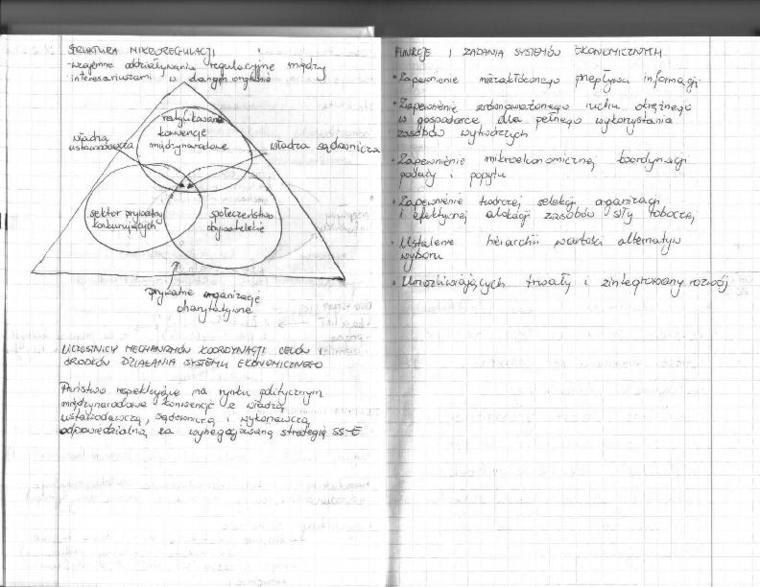 STRUKTURA MIKROREGULACJI
-wzajemne oddziaływania regulacyjne między
interesariuszami w danym
ratyfikowane
konwencje
międzynarodowe
władza
ustawodawcza
władza sądownicza
sektor prywatny
konkurujących
społeczeństwo
obywatelskie
prywatne organizacje
charytatywne
UCZESTNICY MECHANIZMÓW KOORDYNACJI CELÓW I
ŚRODKÓW DZIAŁANIA SYSTEMU EKONOMICZNEGO
Państwo respektujące na rynku politycznym
międzynarodowe konwencje z władzą
ustawodawczą, sądowniczą, wykonawczą
odpowiedzialną za wynegocjowaną strategię SS-E
FUNKCJE I ZADANIA SYSTEMÓW EKONOMICZNYCH
• Zapewnienie niezakłóconego przepływu informacji
• Zapewnienie zrównoważonego ruchu okrężnego
w gospodarce dla pełnego wykorzystania
zasobów wytwórczych
• Zapewnienie mikroekonomicznej koordynacji
podaży i popytu
• Zapewnienie twórczej selekcji organizacji
i efektywnej alokacji zasobów siły roboczej
• Ustalenie hierarchii wartości alternatyw
wyboru
• Umożliwiających trwały i zintegrowany rozwój